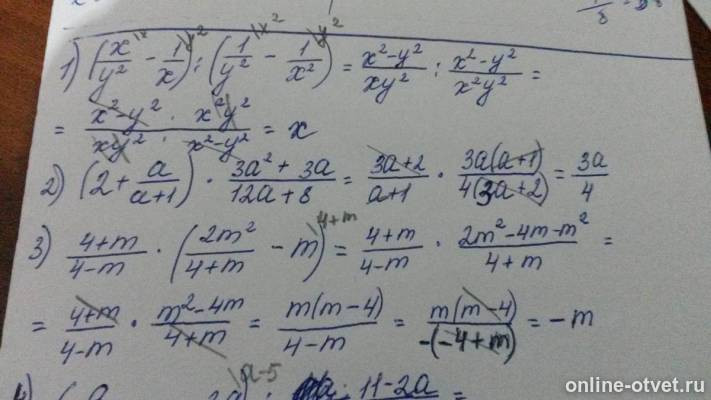 1) (x/y² - 1/x) : (1/y² - 1/x²) = (x²-y²)/(xy²) : (x²-y²)/(x²y²) =
= (x²-y²)/(xy²) · (x²y²)/(x²-y²) = x
2) (2 + a/(a+1)) · (3a² + 3a)/(12a+8) = (3a+2)/(a+1) · 3a(a+1)/4(3a+2) = 3a/4
3) (4+m)/(4-m) · (2m²/(4+m) - m) = (4+m)/(4-m) · (2m²-4m-m²)/(4+m) =
= (4+m)/(4-m) · (m²-4m)/(4+m) = m(m-4)/(4-m) = m(m-4)/-(-4+m) = -m
a-5
11-2a =
online-otvet.ru